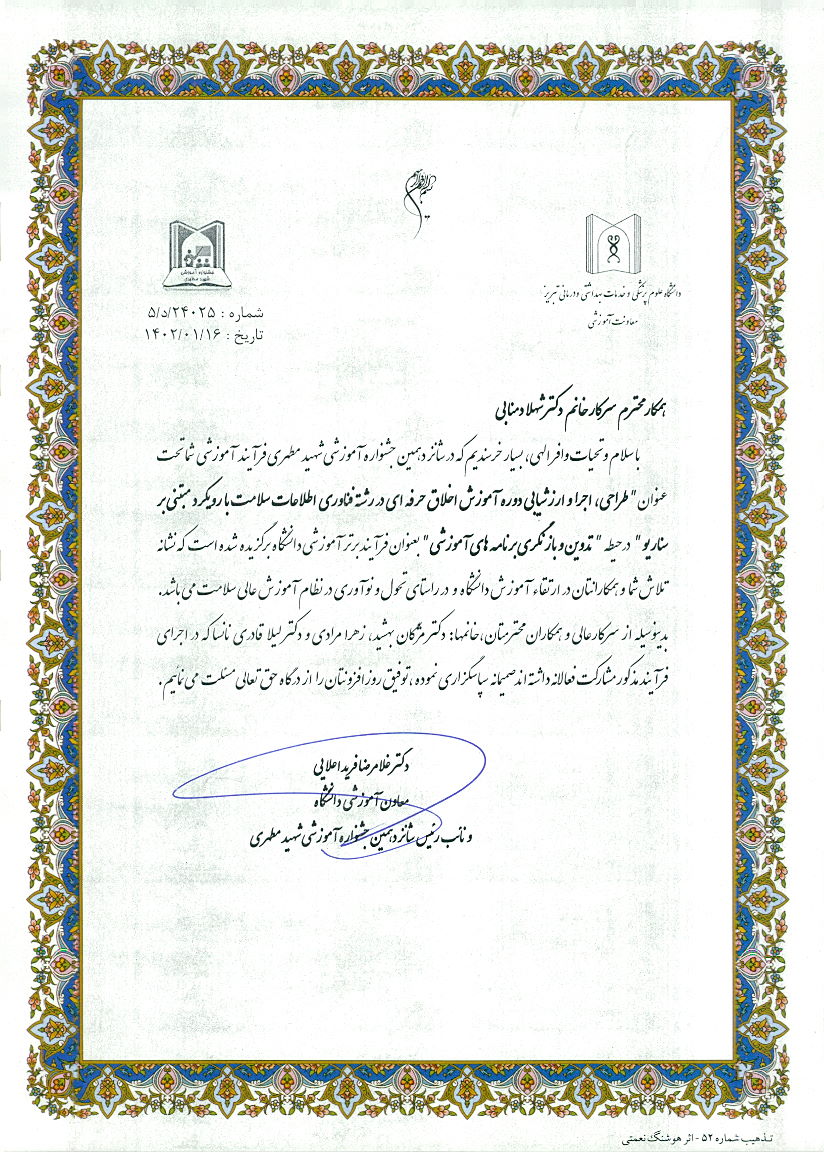 بسم الله الرحمن الرحیم
جشنواره آموزشی
شهید مطهری
دانشگاه علوم پزشکی و خدمات بهداشتی و درمانی تبریز
معاونت آموزشی
شماره : ۵/د/۲۴۰۲۵
تاریخ : ۱۴۰۲/۰۱/۱۶
همکار محترم سرکار خانم دکتر شهلا دمنابی
با سلام و تحیات وافر الهی، بسیار خرسندیم که در شانزدهمین جشنواره آموزشی شهید مطهری فرآیند آموزشی شما تحت
عنوان "طراحی، اجرا و ارزشیابی دوره آموزش اخلاق حرفه ای در رشته فناوری اطلاعات سلامت با رویکرد مبتنی بر
سناریو" در حیطه "تدوین و بازنگری برنامه های آموزشی" بعنوان فرآیند برتر آموزشی دانشگاه برگزیده شده است که نشانه
تلاش شما و همکارانتان در ارتقاء آموزش دانشگاه و در راستای تحول و نوآوری در نظام آموزش عالی سلامت می باشد.
بدینوسیله از سرکار عالی و همکاران محترمتان، خانمها: دکتر مژگان بهشید، زهرا مرادی و دکتر لیلا قادری نانسا که در اجرای
فرآیند مذکور مشارکت فعالانه داشته اند صمیمانه سپاسگزاری نموده، توفیق روزافزونتان را از درگاه حق تعالی مسئلت می نمایم.
دکتر غلامرضا فرید اعلایی
معاون آموزشی دانشگاه
و نائب رئیس شانزدهمین جشنواره آموزشی شهید مطهری
تذهیب شماره ۵۲ - اثر هوشنگ نعمتی